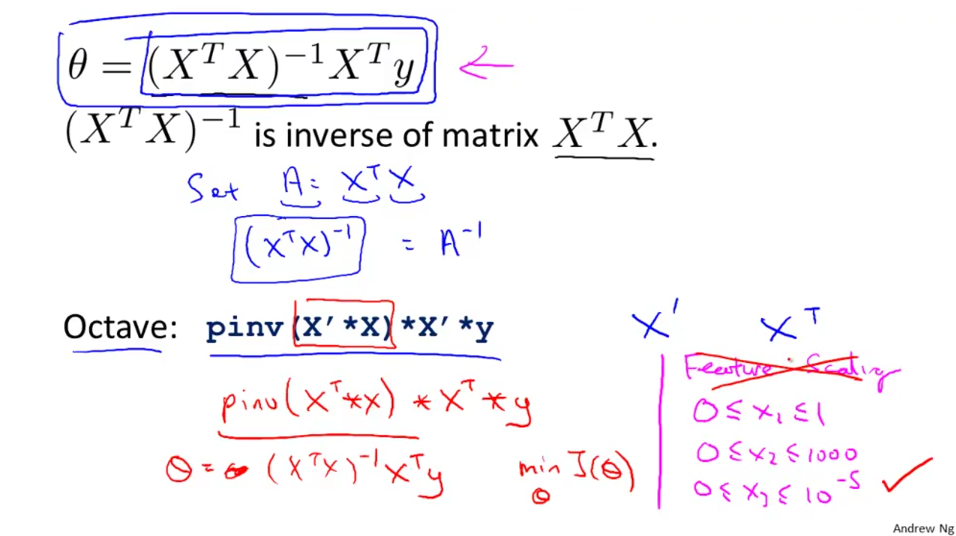 θ = (XᵀX)⁻¹Xᵀy
(XᵀX)⁻¹ is inverse of matrix XᵀX.
Set A = XᵀX
(XᵀX)⁻¹ = A⁻¹
Octave: pinv(X'*X)*X'*y
X' Xᵀ
pinv(Xᵀ*X) * Xᵀ * y
θ = (XᵀX)⁻¹Xᵀy
min J(θ)
θ
Feature Scaling
0 ≤ x₁ ≤ 1
0 ≤ x₂ ≤ 1000
0 ≤ x₃ ≤ 10⁻⁵
Andrew Ng